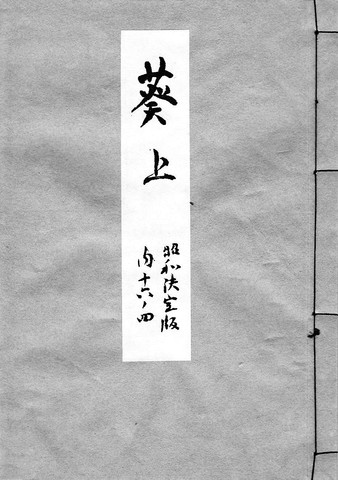 葵上
昭和決定版
内十六ノ四